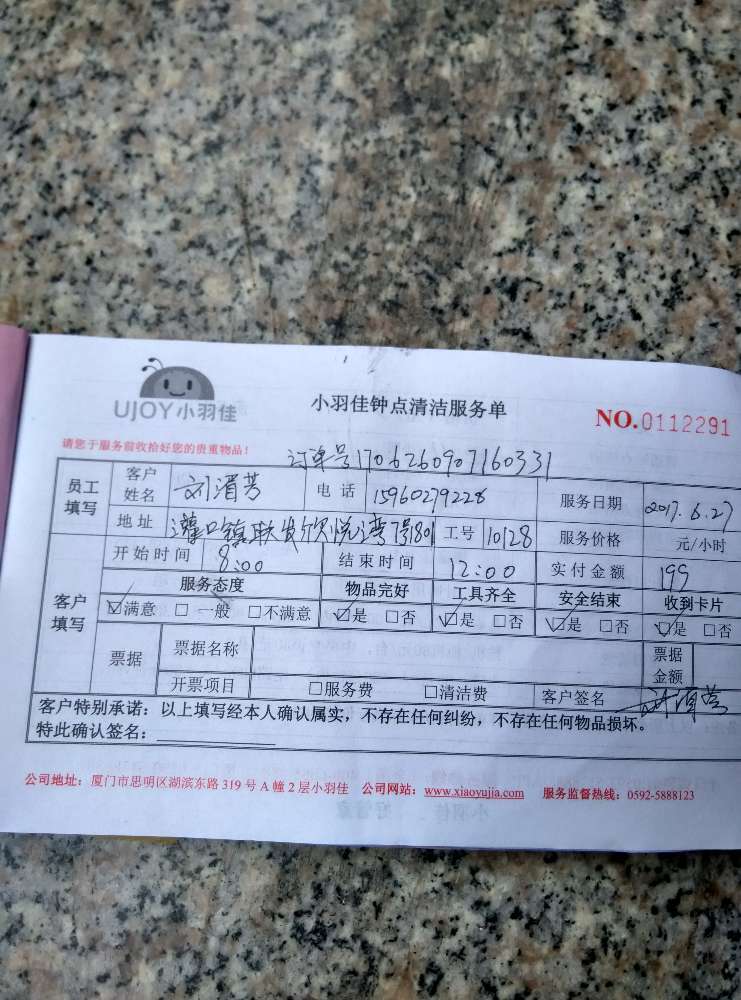 UJOY小羽佳
小羽佳钟点清洁服务单
NO.0112291
请您于服务前收拾好您的贵重物品!
订单号1706260907160331
员工填写 客户姓名 刘清芳 电话 15960279228 服务日期 2017.6.27
地址 灌口镇联发欣悦湾7号801 工号 10128 服务价格 元/小时
客户填写 开始时间 8:00 结束时间 12:00 实付金额 199
服务态度 物品完好 工具齐全 安全结束 收到卡片
☑满意 □一般 □不满意 ☑是 □否 ☑是 □否 ☑是 □否 ☑是 □否
票据 票据名称 票据金额
开票项目 □服务费 □清洁费 客户签名
客户特别承诺:以上填写经本人确认属实,不存在任何纠纷,不存在任何物品损坏。
特此确认签名:
公司地址:厦门市思明区湖滨东路 319 号 A 幢 2 层小羽佳 公司网站:www.xiaoyujia.com 服务监督热线:0592-5888123